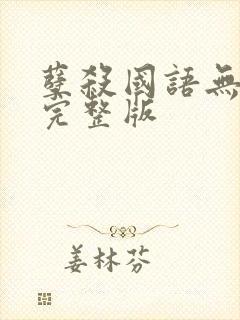 孽殺國語無
完整版
姜林芬